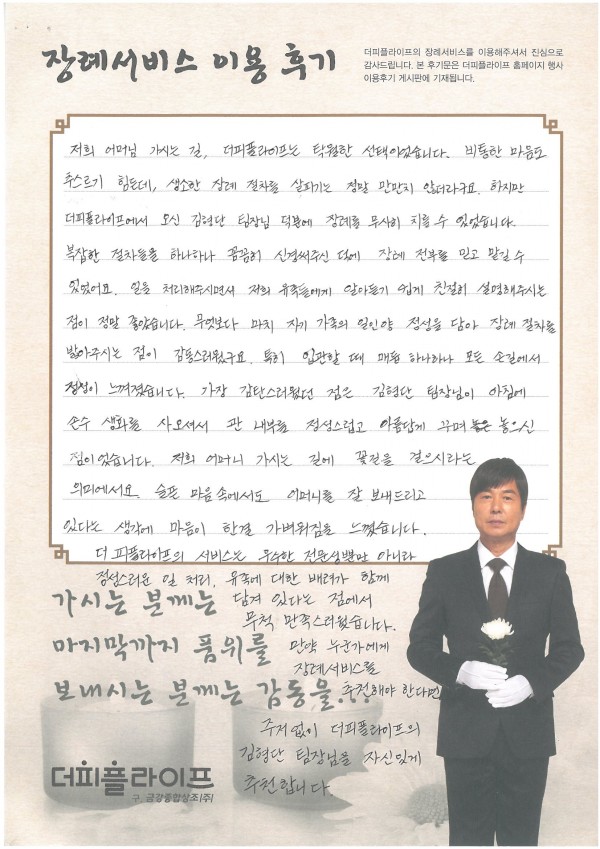 장례서비스 이용 후기
더피플라이프의 장례서비스를 이용해주셔서 진심으로
감사드립니다. 본 후기문은 더피플라이프 홈페이지 행사
이용후기 게시판에 기재됩니다.
저희 어머님 가시는 길, 더피플라이프는 탁월한 선택이었습니다. 비통한 마음도
추스르기 힘든데, 생소한 장례 절차를 살피기는 정말 만만치 않더라구요. 하지만
더피플라이프에서 오신 김형단 팀장님 덕분에 장례를 무사히 치를 수 있었습니다.
복잡한 절차들을 하나하나 꼼꼼히 신경써주신 덕에 장례 전부를 믿고 맡길 수
있었어요. 일을 처리해주시면서 저희 유족들에게 알아듣기 쉽게 친절히 설명해주시는
점이 정말 좋았습니다. 무엇보다 마치 자기 가족의 일인양 정성을 담아 장례 절차를
밟아주시는 점이 감동스러웠구요. 특히 입관할 때 매듭 하나하나 모든 손길에서
정성이 느껴졌습니다. 가장 감탄스러웠던 점은 김형단 팀장님이 아침에
손수 생화를 사오셔서 관 내부를 정성스럽고 아름답게 꾸며 놓으신
점이었습니다. 저희 어머니 가시는 길에 꽃길을 걸으시라는
의미에서요. 슬픈 마음 속에서도 어머니를 잘 보내드리고
있다는 생각에 마음이 한결 가벼워짐을 느꼈습니다.
더피플라이프의 서비스는 우수한 전문성뿐만 아니라
정성스러운 일 처리, 유족에 대한 배려가 함께
담겨 있다는 점에서
무척 만족스러웠습니다.
만약 누군가에게
장례서비스를
추천해야 한다면
주저없이 더피플라이프의
김형단 팀장님을 자신있게
추천합니다.
가시는 분께는
마지막까지 품위를
보내시는 분께는 감동을...
더피플라이프
구. 금강종합상조(주)